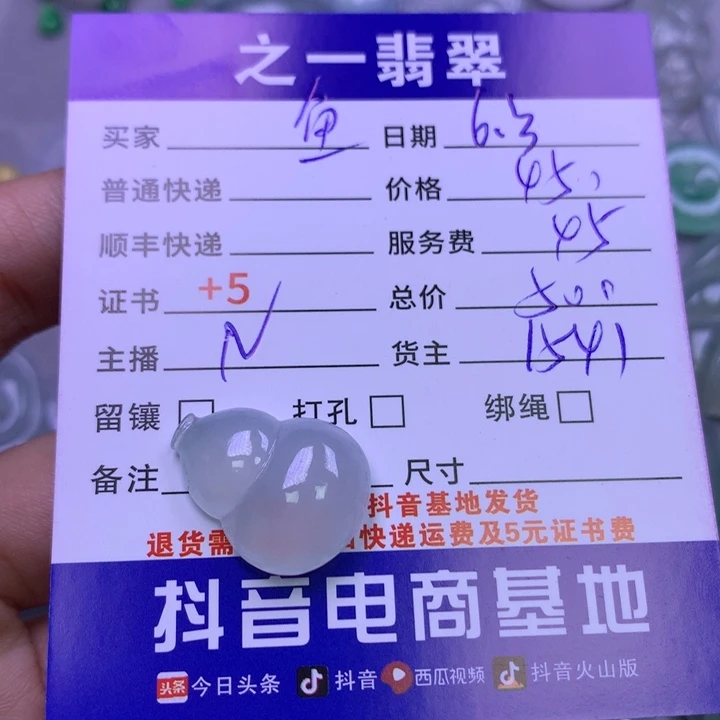 之一翡翠
买家 鱼 日期 6.5
普通快递 价格 450
顺丰快递 服务费 45
证书 +5 总价 500
主播 N 货主 1541
留镶 打孔 绑绳
备注 尺寸
抖音基地发货
退货需 快递运费及5元证书费
抖音电商基地
头条 今日头条 抖音 西瓜视频 抖音火山版